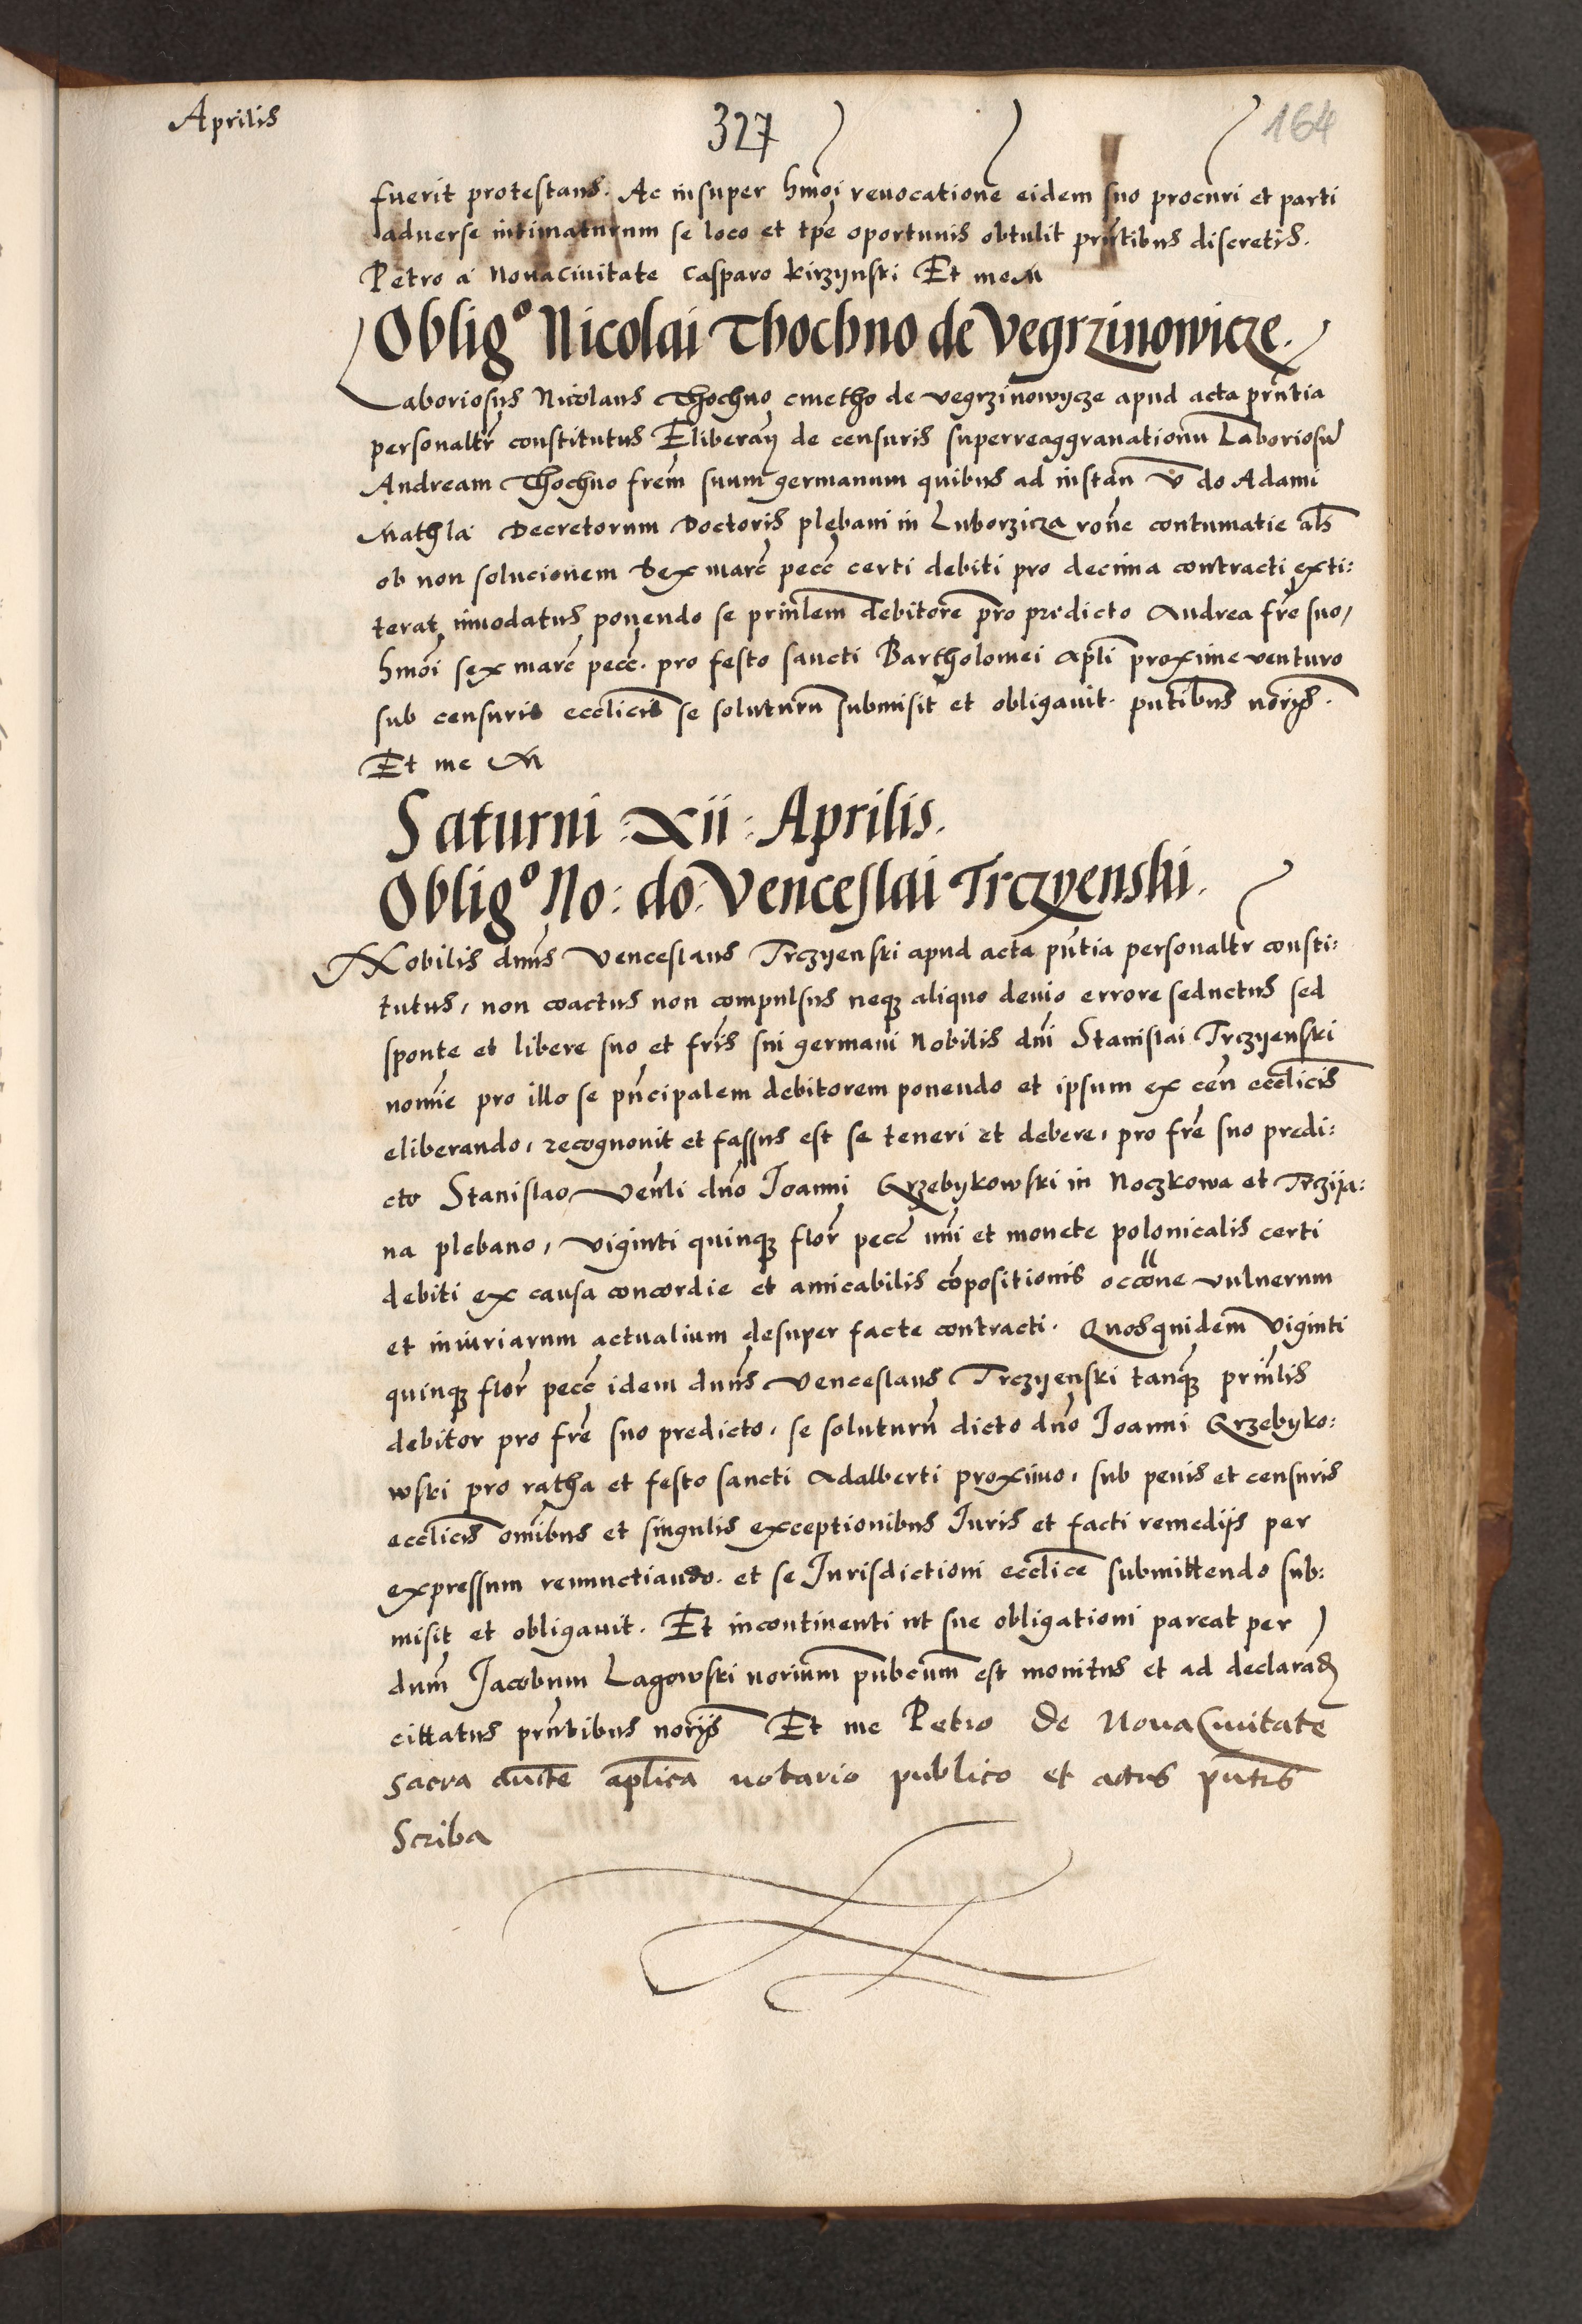 Aprilis
327
164
fuerit protestans. Ac insuper hmoi revocatione eidem suo procuri et parti
adverse intimaturum se loco et tpe oportunis obtulit prntibus discretis.
Petro a Novacivitate Casparo Kirzynski Et me
Oblig° Nicolai Thochno de Vegrzinowicze.
Laboriosus Nicolaus Thochno cmetho de vegrzinowycze apud acta prntia
personaltr constitutus Eliberan de censuris superreaggravationu Laboriosu
Andream Thochno frem suum germanum quibus ad instan v do Adami
Mathla Decretorum Doctoris plebani in Luborzicza rone contumatie als
ob non solucionem sex marc pecc certi debiti pro decima contracti exti:
terat innodatus ponendo se prinlem debitore pro predicto Andrea fre suo,
hmoi sex marc pecc. pro festo sancti Bartholomei apli proxime venturo
sub censuris ecclicis se soluturu submisit et obligavit. pntibus norys.
Et me
Saturni : Xii : Aprilis.
Oblig° No: do: Venceslai Trczyenski.
Nobilis dnus Venceslaus Trczyenski apud acta pntia personaltr consti:
tutus, non coactus non compulsus neq aliquo devio errore seductus sed
sponte et libere suo et fris sui germani Nobilis dni Stanislai Trczyenski
nomie pro illo se pncipalem debitorem ponendo et ipsum ex cen ecclicis
eliberando, recognovit et fassus est se teneri et debere, pro fre suo predi:
cto Stanislao, Venli dno Joanni Grzebykowski in Noczkowa et Trczya:
na plebano, viginti quinq flor pecc nui et monete polonicalis certi
debiti ex causa concordie et amicabilis copositionis occone vulnerum
et iniuriarum actualium desuper facte contracti. Quosquidem viginti
quinq flor pecc idem dnus Venceslaus Trczyenski tanq prinlis
debitor pro fre suo predicto, se soluturu dicto dno Joanni Grzebyko:
wski pro ratha et festo sancti Adalberti proximo, sub penis et censuris
ecclicis omibus et singulis exceptionibus Juris et facti remedys per
expressum renunctiando. et se Jurisdictioni ecclice submittendo sub:
misit et obligavit. Et incontinenti ut sue obligationi pareat per
dum Jacobum Lagowski norium pubcum est monitus et ad declarad
cittatus prntibus norys Et me Petro de Nova Civitate
sacra aucte aplica notario publico et actus pntis
Scriba